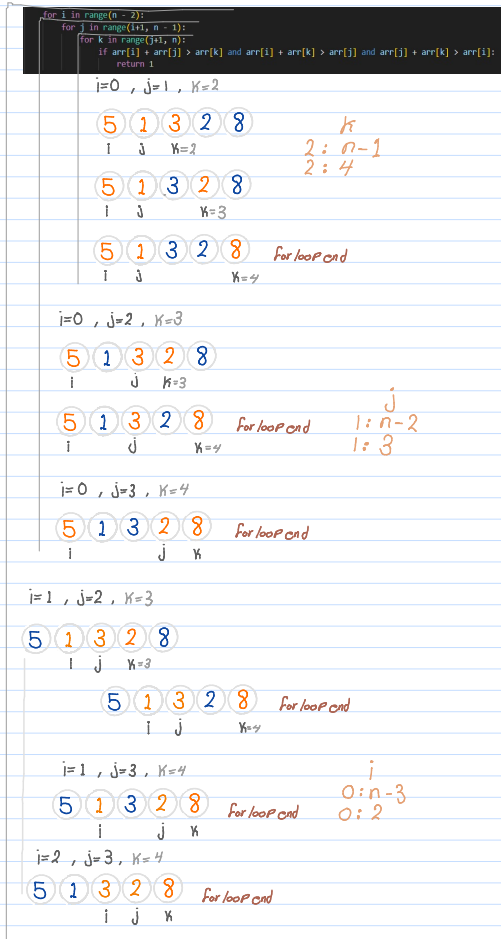 for i in range(n - 2):
for j in range(i+1, n - 1):
for k in range(j+1, n):
if arr[i] + arr[j] > arr[k] and arr[i] + arr[k] > arr[j] and arr[j] + arr[k] > arr[i]:
return 1
i=0 , j=1 , K=2
5 1 3 2 8
i j K=2
K
2 : n-1
2 : 4
5 1 3 2 8
i j K=3
5 1 3 2 8 for loop end
i j K=4
i=0 , j=2 , K=3
5 1 3 2 8
i j K=3
j
1 : n-2
1 : 3
5 1 3 2 8 for loop end
i j K=4
i=0 , j=3 , K=4
5 1 3 2 8 for loop end
i j K
i=1 , j=2 , K=3
5 1 3 2 8
i j K=3
5 1 3 2 8 for loop end
i j K=4
i=1 , j=3 , K=4
i
0 : n-3
0 : 2
5 1 3 2 8 for loop end
i j K
i=2 , j=3 , K=4
5 1 3 2 8 for loop end
i j K